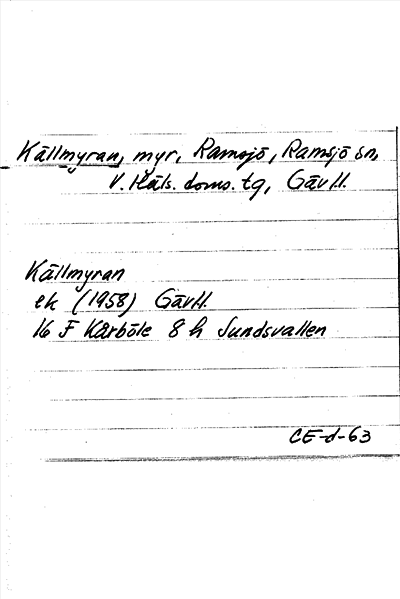 Källmyran, myr, Ramsjö, Ramsjö sn,
V. Häls. doms. tg, Gävl l.
Källmyran
ek (1958) Gävl l.
16 F Kårböle 8 h Sundsvallen
CE-d-63